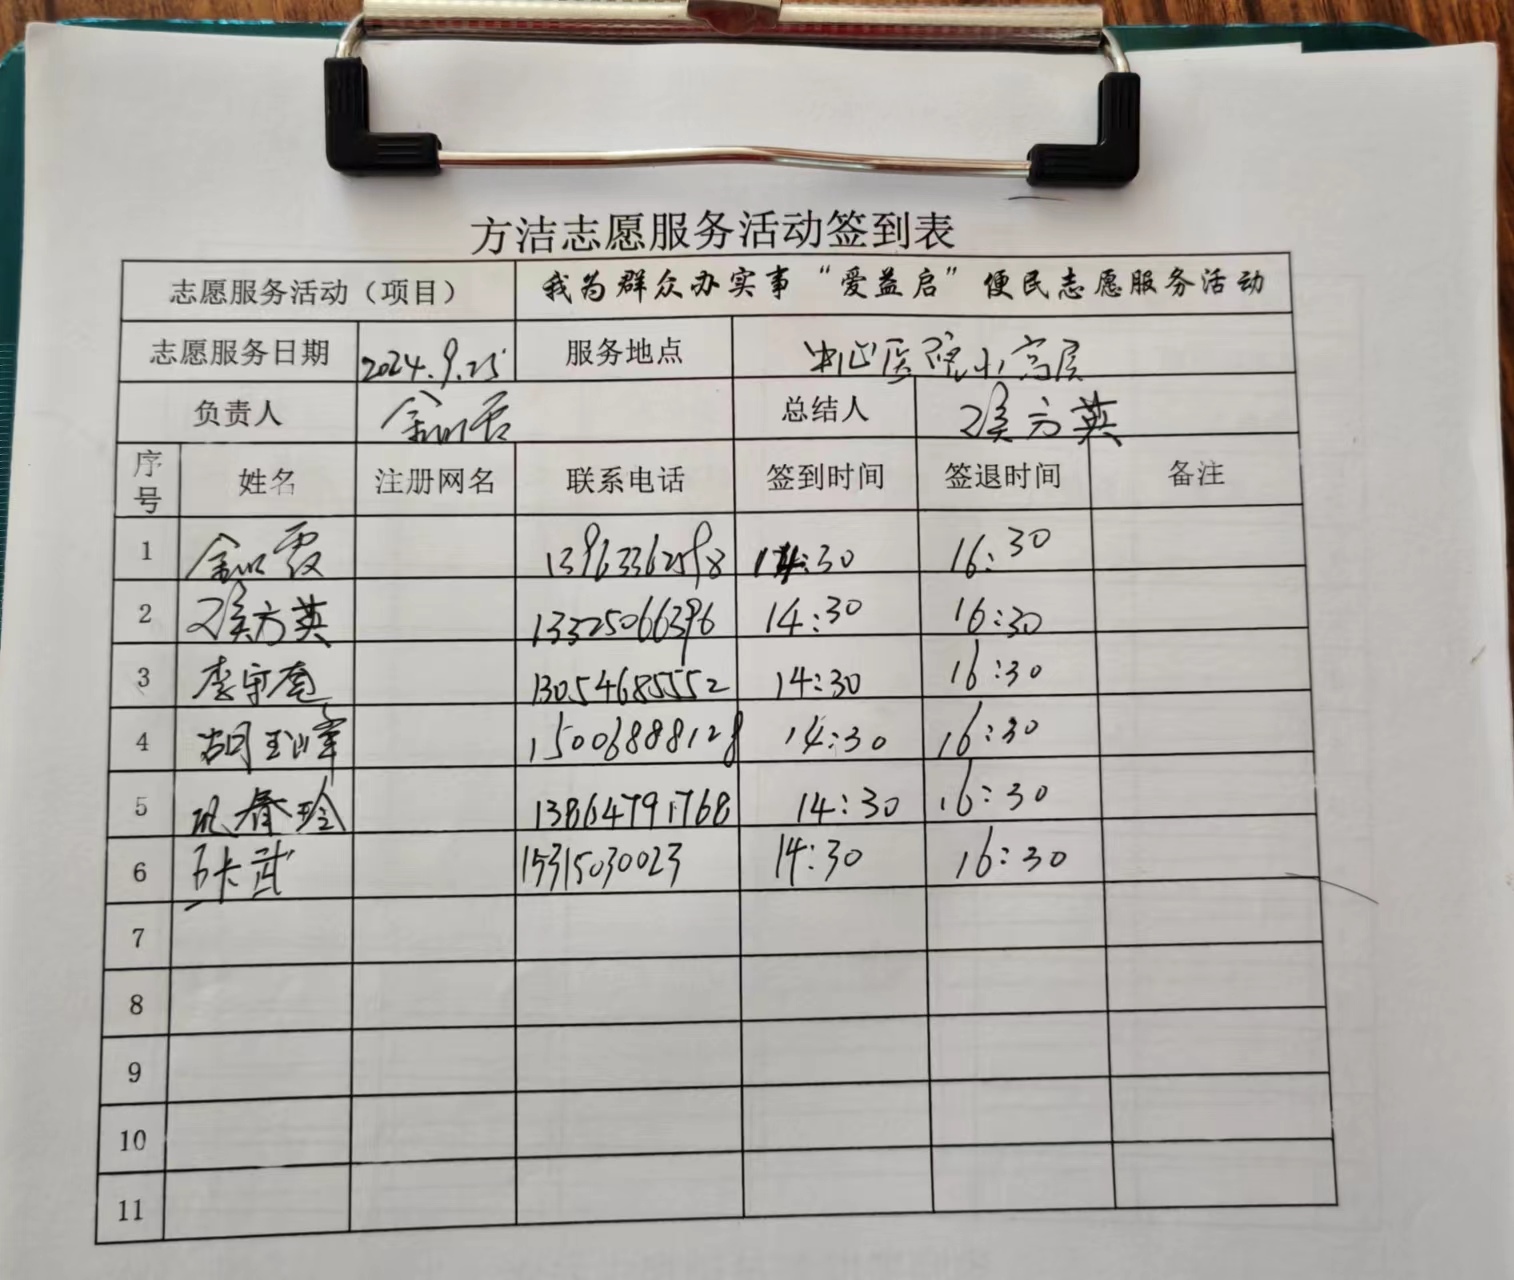 方洁志愿服务活动签到表
志愿服务活动（项目） 我为群众办实事“爱益启”便民志愿服务活动
志愿服务日期 2024.9.25 服务地点 中心医院小高层
负责人 总结人 侯方英
序号 姓名 注册网名 联系电话 签到时间 签退时间 备注
1 霞 13963362598 14:30 16:30
2 侯方英 13325066396 14:30 16:30
3 李守 13054685552 14:30 16:30
4 胡玉峰 15006888128 14:30 16:30
5 巩春玲 13864791768 14:30 16:30
6 武 15315030023 14:30 16:30
7
8
9
10
11